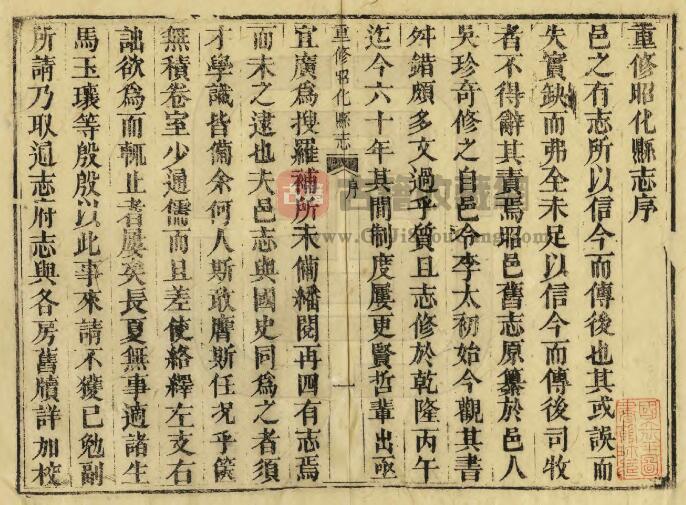 重修昭化縣志序
邑之有志所以信今而傳後也其或誤而
失實缺而弗全未足以信今而傳後司牧
者不得辭其責焉昭邑舊志原纂於邑人
吳珍奇修之自邑令李太初始今觀其書
舛錯頗多文過乎質且志修於乾隆丙午
迄今六十年其間制度屢更賢哲輩出亟
重修昭化縣志 序 一
宜廣為搜羅補所未備繙閱再四有志焉
而未之逮也夫邑志與國史同為之者須
才學識皆備余何人斯敢膺斯任况乎篋
無積卷室少通儒而且差使絡繹左支右
詘欲為而輒止者屢矣長夏無事適諸生
馬玉瓖等殷殷以此事來請不獲已勉副
所請乃取通志府志與各房舊牘詳加校